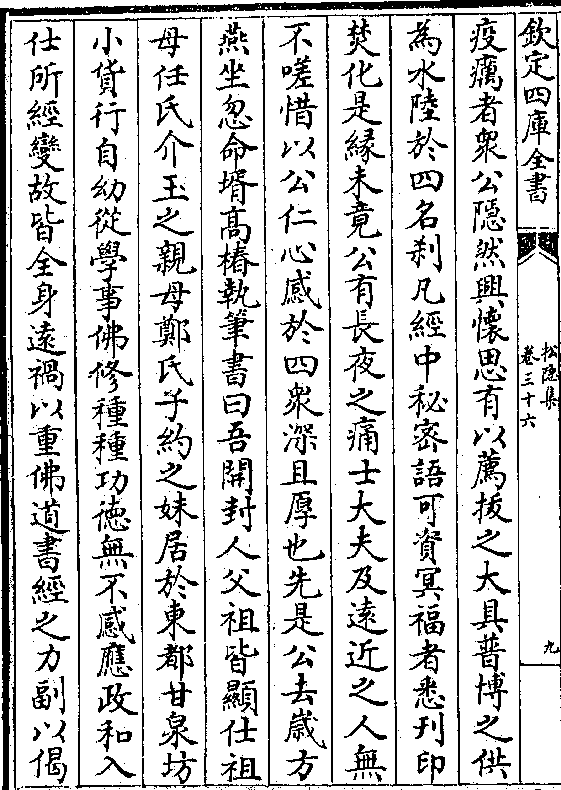 欽定四庫全書
松隠集
卷三十六
九
疫癘者衆公隠然興懷思有以薦拔之大具普博之供
為水陸於四名刹凡經中秘密語可資冥福者悉刋印
焚化是縁未竟公有長夜之痛士大夫及逺近之人無
不嗟惜以公仁心感於四衆深且厚也先是公去歳方
燕坐忽命壻髙椿執筆書曰吾開封人父祖皆顯仕祖
母任氏介玉之親母鄭氏子約之妹居於東都甘泉坊
小貨行自幼從學事佛修種種功徳無不感應政和入
仕所經變故皆全身逺禍以重佛道書經之力副以偈